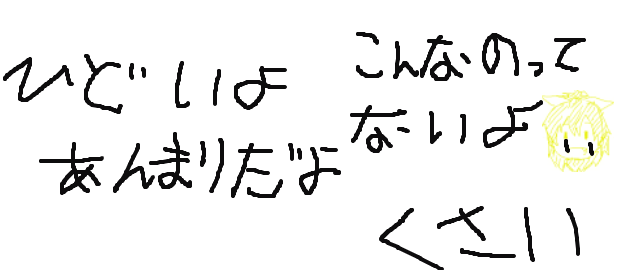 ひどいよ
あんまりだよ
こんなのって
ないよ
くさい